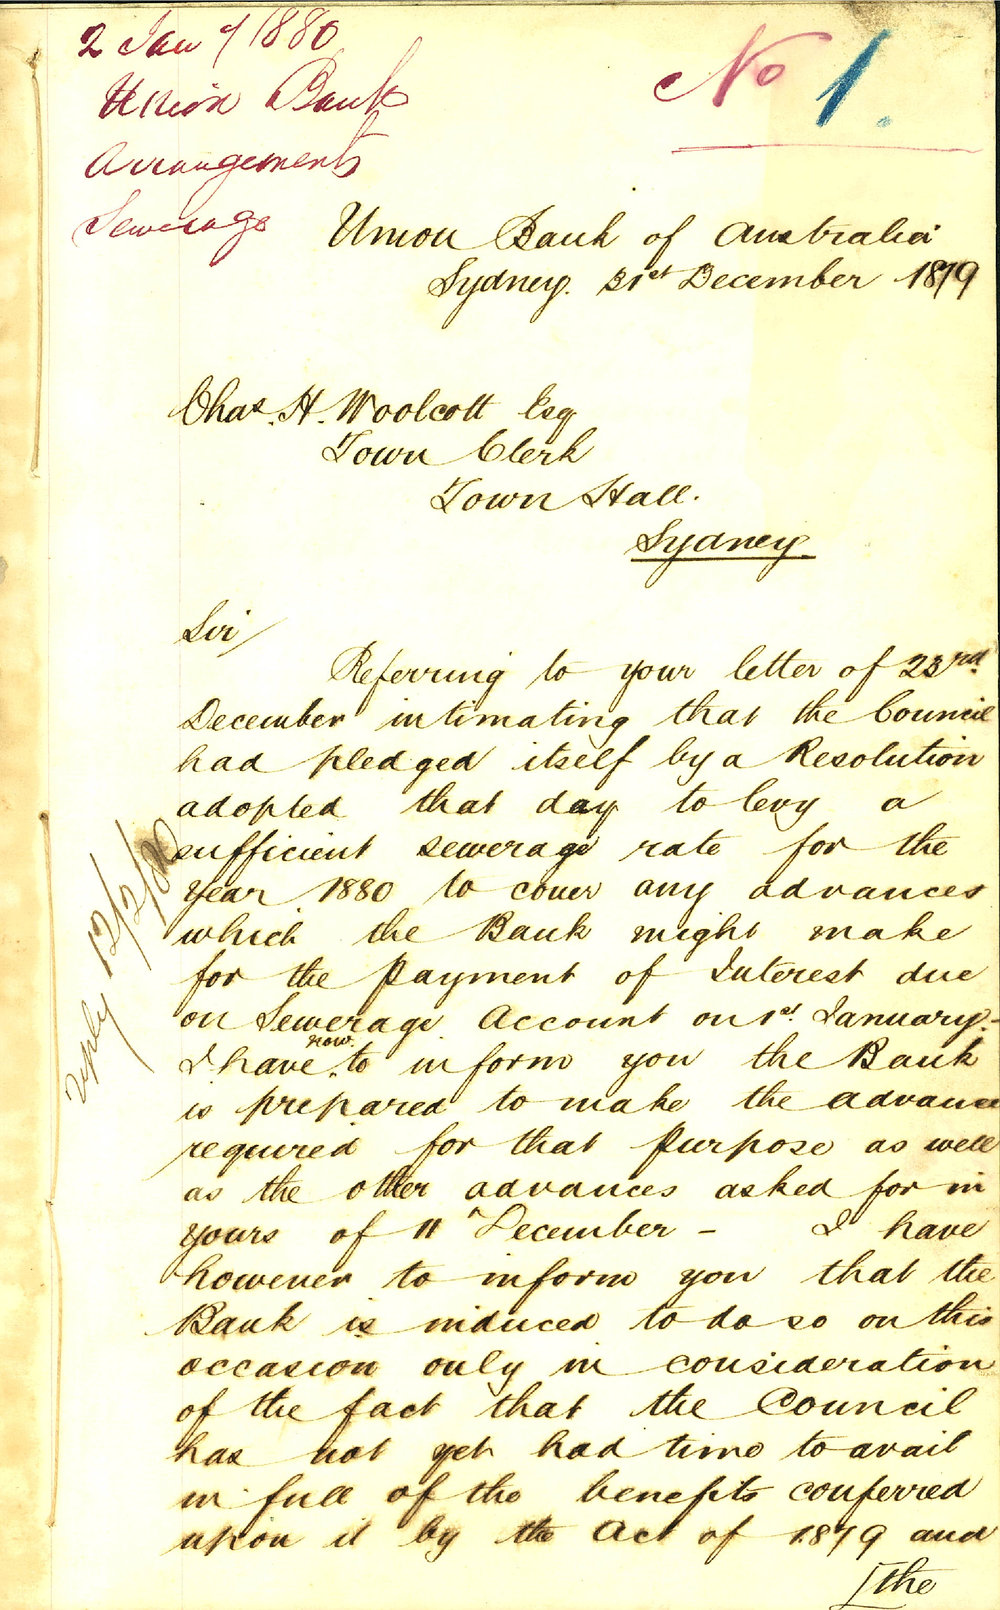 2 Jany /1880
Union Bank
Arrangements
Sewerage
No 1.
Union Bank of Australia
Sydney. 31st December 1879
Chas. H. Woolcott Esq
Town Clerk
Town Hall.
Sydney.
Sir/
Referring to your letter of 23rd.
December intimating that the Council
had pledged itself by a Resolution
adopted that day to levy a
sufficient sewerage rate for the
year 1880 to cover any advances
which the Bank might make
for the Payment of Interest due
on Sewerage Account on 1st. January.-
now
I have to inform you the Bank
is prepared to make the advance
required for that Purpose as well
as the other advances asked for in
yours of 11 December - I have
however to inform you that the
Bank is induced to do so on this
occasion only in consideration
of the fact that the Council
has not yet had time to avail
in full of the benefits conferred
upon it by the Act of 1879 and
[the
reply 12/2/80